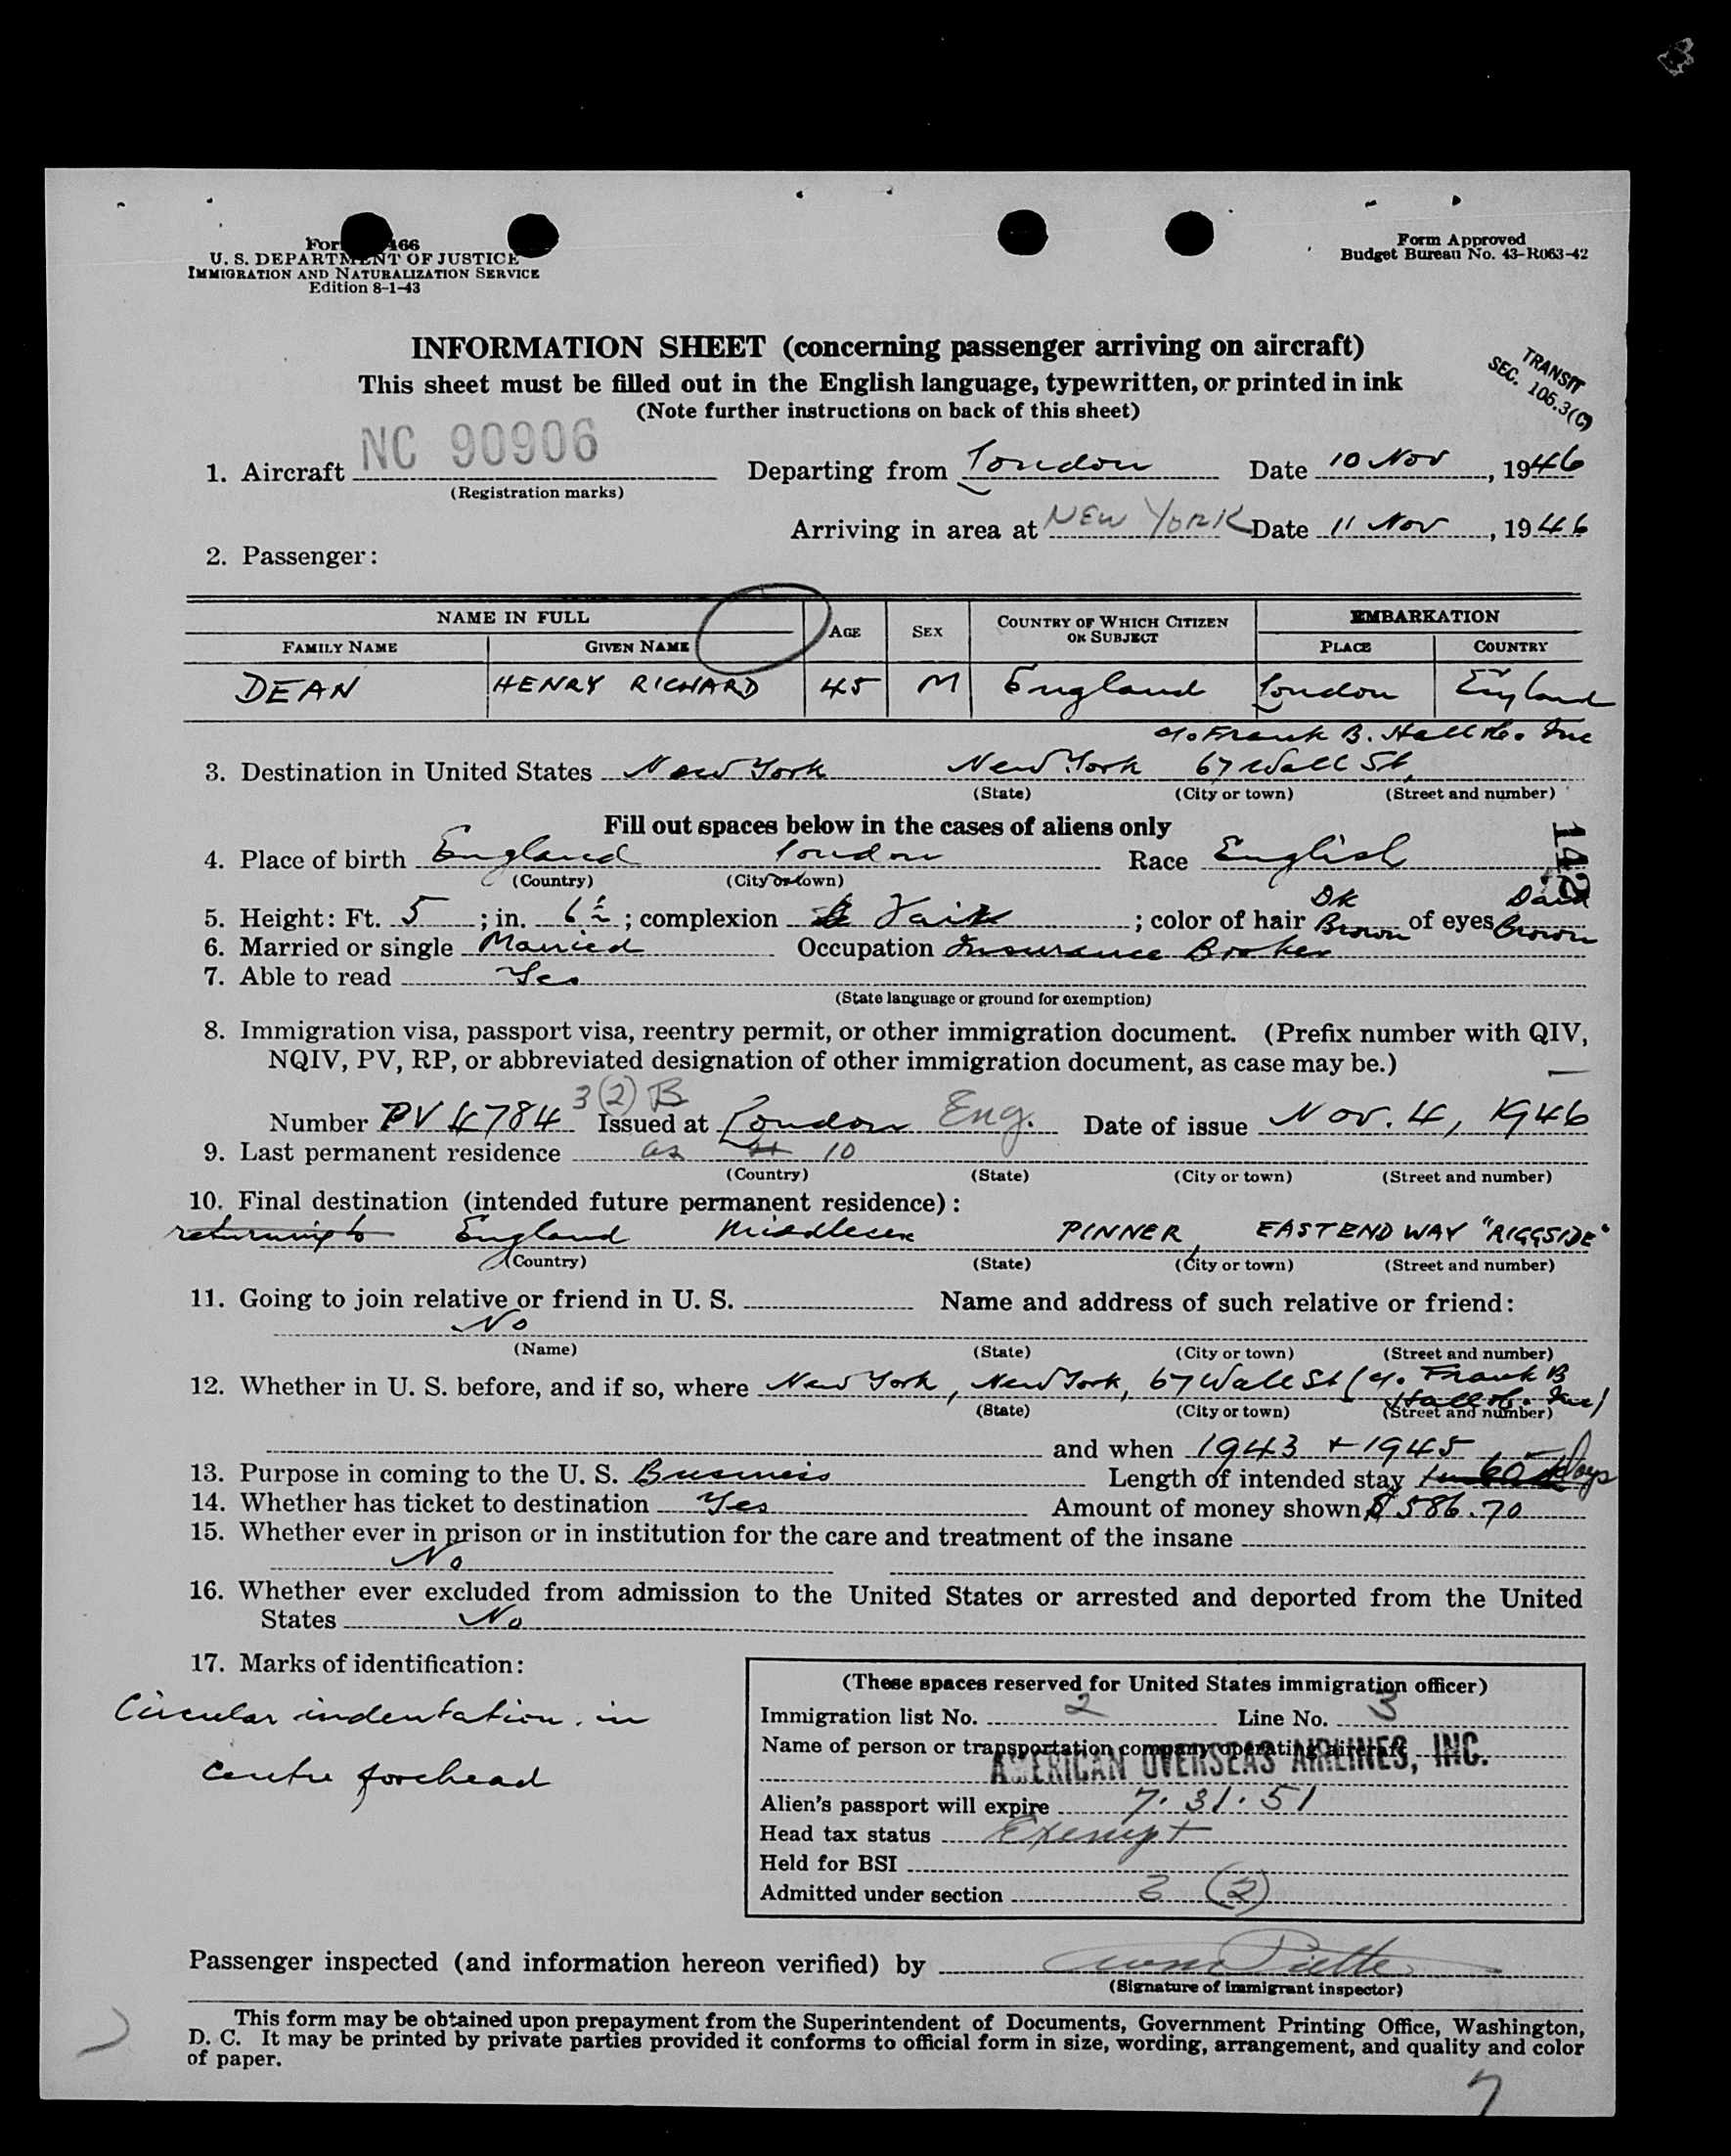 For 466
U. S. DEPARTMENT OF JUSTICE
IMMIGRATION AND NATURALIZATION SERVICE
Edition 8-1-43
Form Approved
Budget Bureau No. 43-R063-42
INFORMATION SHEET (concerning passenger arriving on aircraft)
This sheet must be filled out in the English language, typewritten, or printed in ink
(Note further instructions on back of this sheet)
TRANSIT
SEC. 106.3(C)
1. Aircraft NC 90906 Departing from London Date 10 Nov, 1946
(Registration marks)
Arriving in area at NEW YORK Date 11 Nov, 1946
2. Passenger:
NAME IN FULL AGE SEX COUNTRY OF WHICH CITIZEN OR SUBJECT EMBARKATION
FAMILY NAME GIVEN NAME PLACE COUNTRY
DEAN HENRY RICHARD 45 M England London England
c/o Frank B. Hall & Co. Inc
3. Destination in United States New York New York 67 Wall St,
(State) (City or town) (Street and number)
Fill out spaces below in the cases of aliens only
4. Place of birth England London Race English
(Country) (City or town)
142
5. Height: Ft. 5; in. 6½; complexion Fair; color of hair Dk Brown of eyes Dark Brown
6. Married or single Married Occupation Insurance Broker
7. Able to read Yes
(State language or ground for exemption)
8. Immigration visa, passport visa, reentry permit, or other immigration document. (Prefix number with QIV,
NQIV, PV, RP, or abbreviated designation of other immigration document, as case may be.)
3(2) B
Number PV 4784 Issued at London Eng. Date of issue Nov. 4, 1946
9. Last permanent residence as 10
(Country) (State) (City or town) (Street and number)
10. Final destination (intended future permanent residence):
returning to England Middlesex PINNER, EASTEND WAY "RIGGSIDE"
(Country) (State) (City or town) (Street and number)
11. Going to join relative or friend in U. S. Name and address of such relative or friend:
No
(Name) (State) (City or town) (Street and number)
12. Whether in U. S. before, and if so, where New York, New York, 67 Wall St (c/o Frank B Hall & Co. Inc)
(State) (City or town) (Street and number)
and when 1943 + 1945
13. Purpose in coming to the U. S. Business Length of intended stay 60 Days
14. Whether has ticket to destination Yes Amount of money shown $ 586.70
15. Whether ever in prison or in institution for the care and treatment of the insane
No
16. Whether ever excluded from admission to the United States or arrested and deported from the United
States No
17. Marks of identification:
Circular indentation in
centre forehead
(These spaces reserved for United States immigration officer)
Immigration list No. 2 Line No. 3
Name of person or transportation company operating aircraft
AMERICAN OVERSEAS AIRLINES, INC.
Alien's passport will expire 7.31.51
Head tax status Exempt
Held for BSI
Admitted under section 3 (2)
Passenger inspected (and information hereon verified) by
(Signature of immigrant inspector)
This form may be obtained upon prepayment from the Superintendent of Documents, Government Printing Office, Washington,
D. C. It may be printed by private parties provided it conforms to official form in size, wording, arrangement, and quality and color
of paper.
7